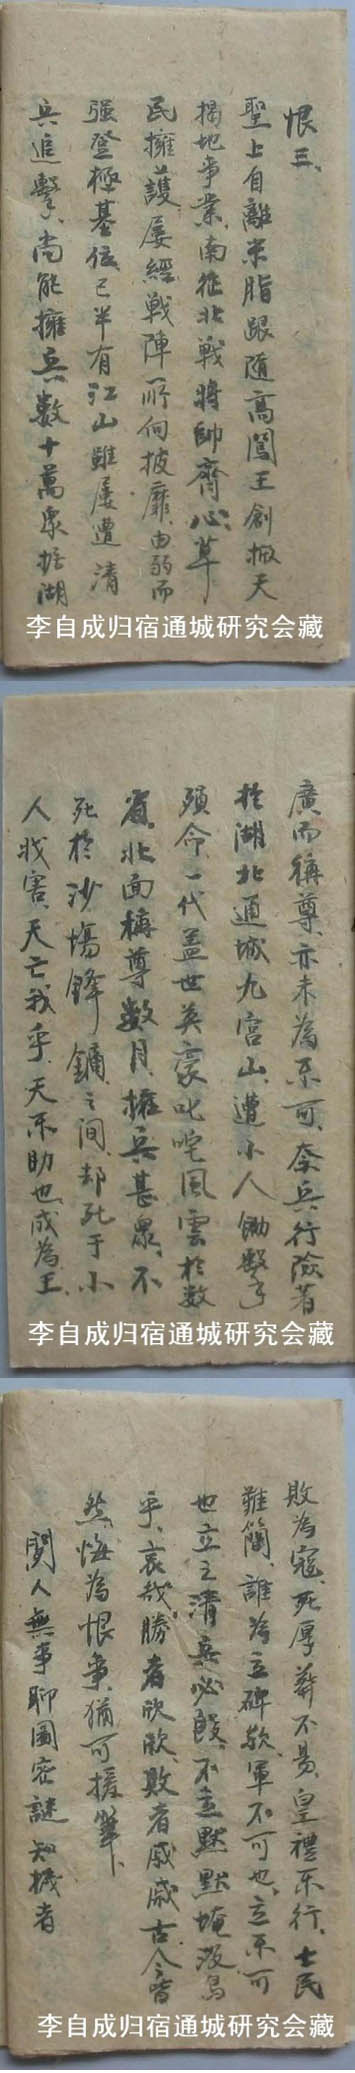 恨三、
聖上自離米脂跟随高闖王創撤天
揭地事業、南征北戰將帥齊心、草
民擁護屡經戦陣所向披靡、由弱而
强登極基位、已半有江山雖屡遭清
兵追擊、尚能擁兵数十萬衆於湖
李自成归宿通城研究会藏
廣而稱尊、亦未為不可、奈兵行險着
於湖北通城九宫山、遭小人鋤擊
殞命、一代盖世英豪叱咤風雲於数
省、北面稱尊数月、擁兵甚衆、不
死於沙塲鋒鏑之间、却死于小
人戕害、天亡我乎、天不助也、成為王、
李自成归宿通城研究会藏
敗為寇、死厚葬不易、皇禮不行、士民
難簡、誰為立碑欤、軍不可也、立不可
也立之清兵必毁、不立默默埯没烏
乎、哀哉、勝者欣欣、敗者戚戚古今皆
然、悔為恨事、猶可援筆、
閑人無事聊圖密謎知機者
李自成归宿通城研究会藏